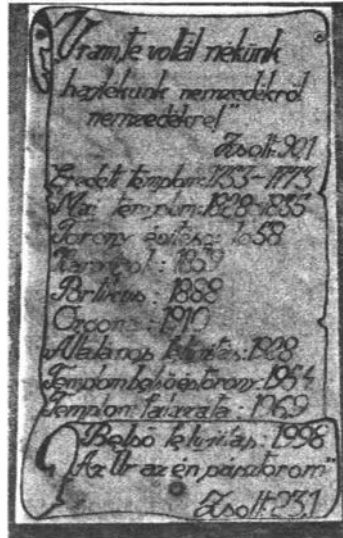 "Uram, te voltál nékünk
hajlékunk nemzedékről
nemzedékre!"
Zsolt: 90,1
Eredeti templom: 1753-1773
Mai templom: 1828-1835
Torony építése: 1858
1859
Portikus: 1888
Orgona: 1910
Általános felújítás: 1928
Templombelső és torony: 1954
Templom tatarozása: 1969
Belső felújítás: 1996
"Az Úr az én pásztorom"
Zsolt: 23,1